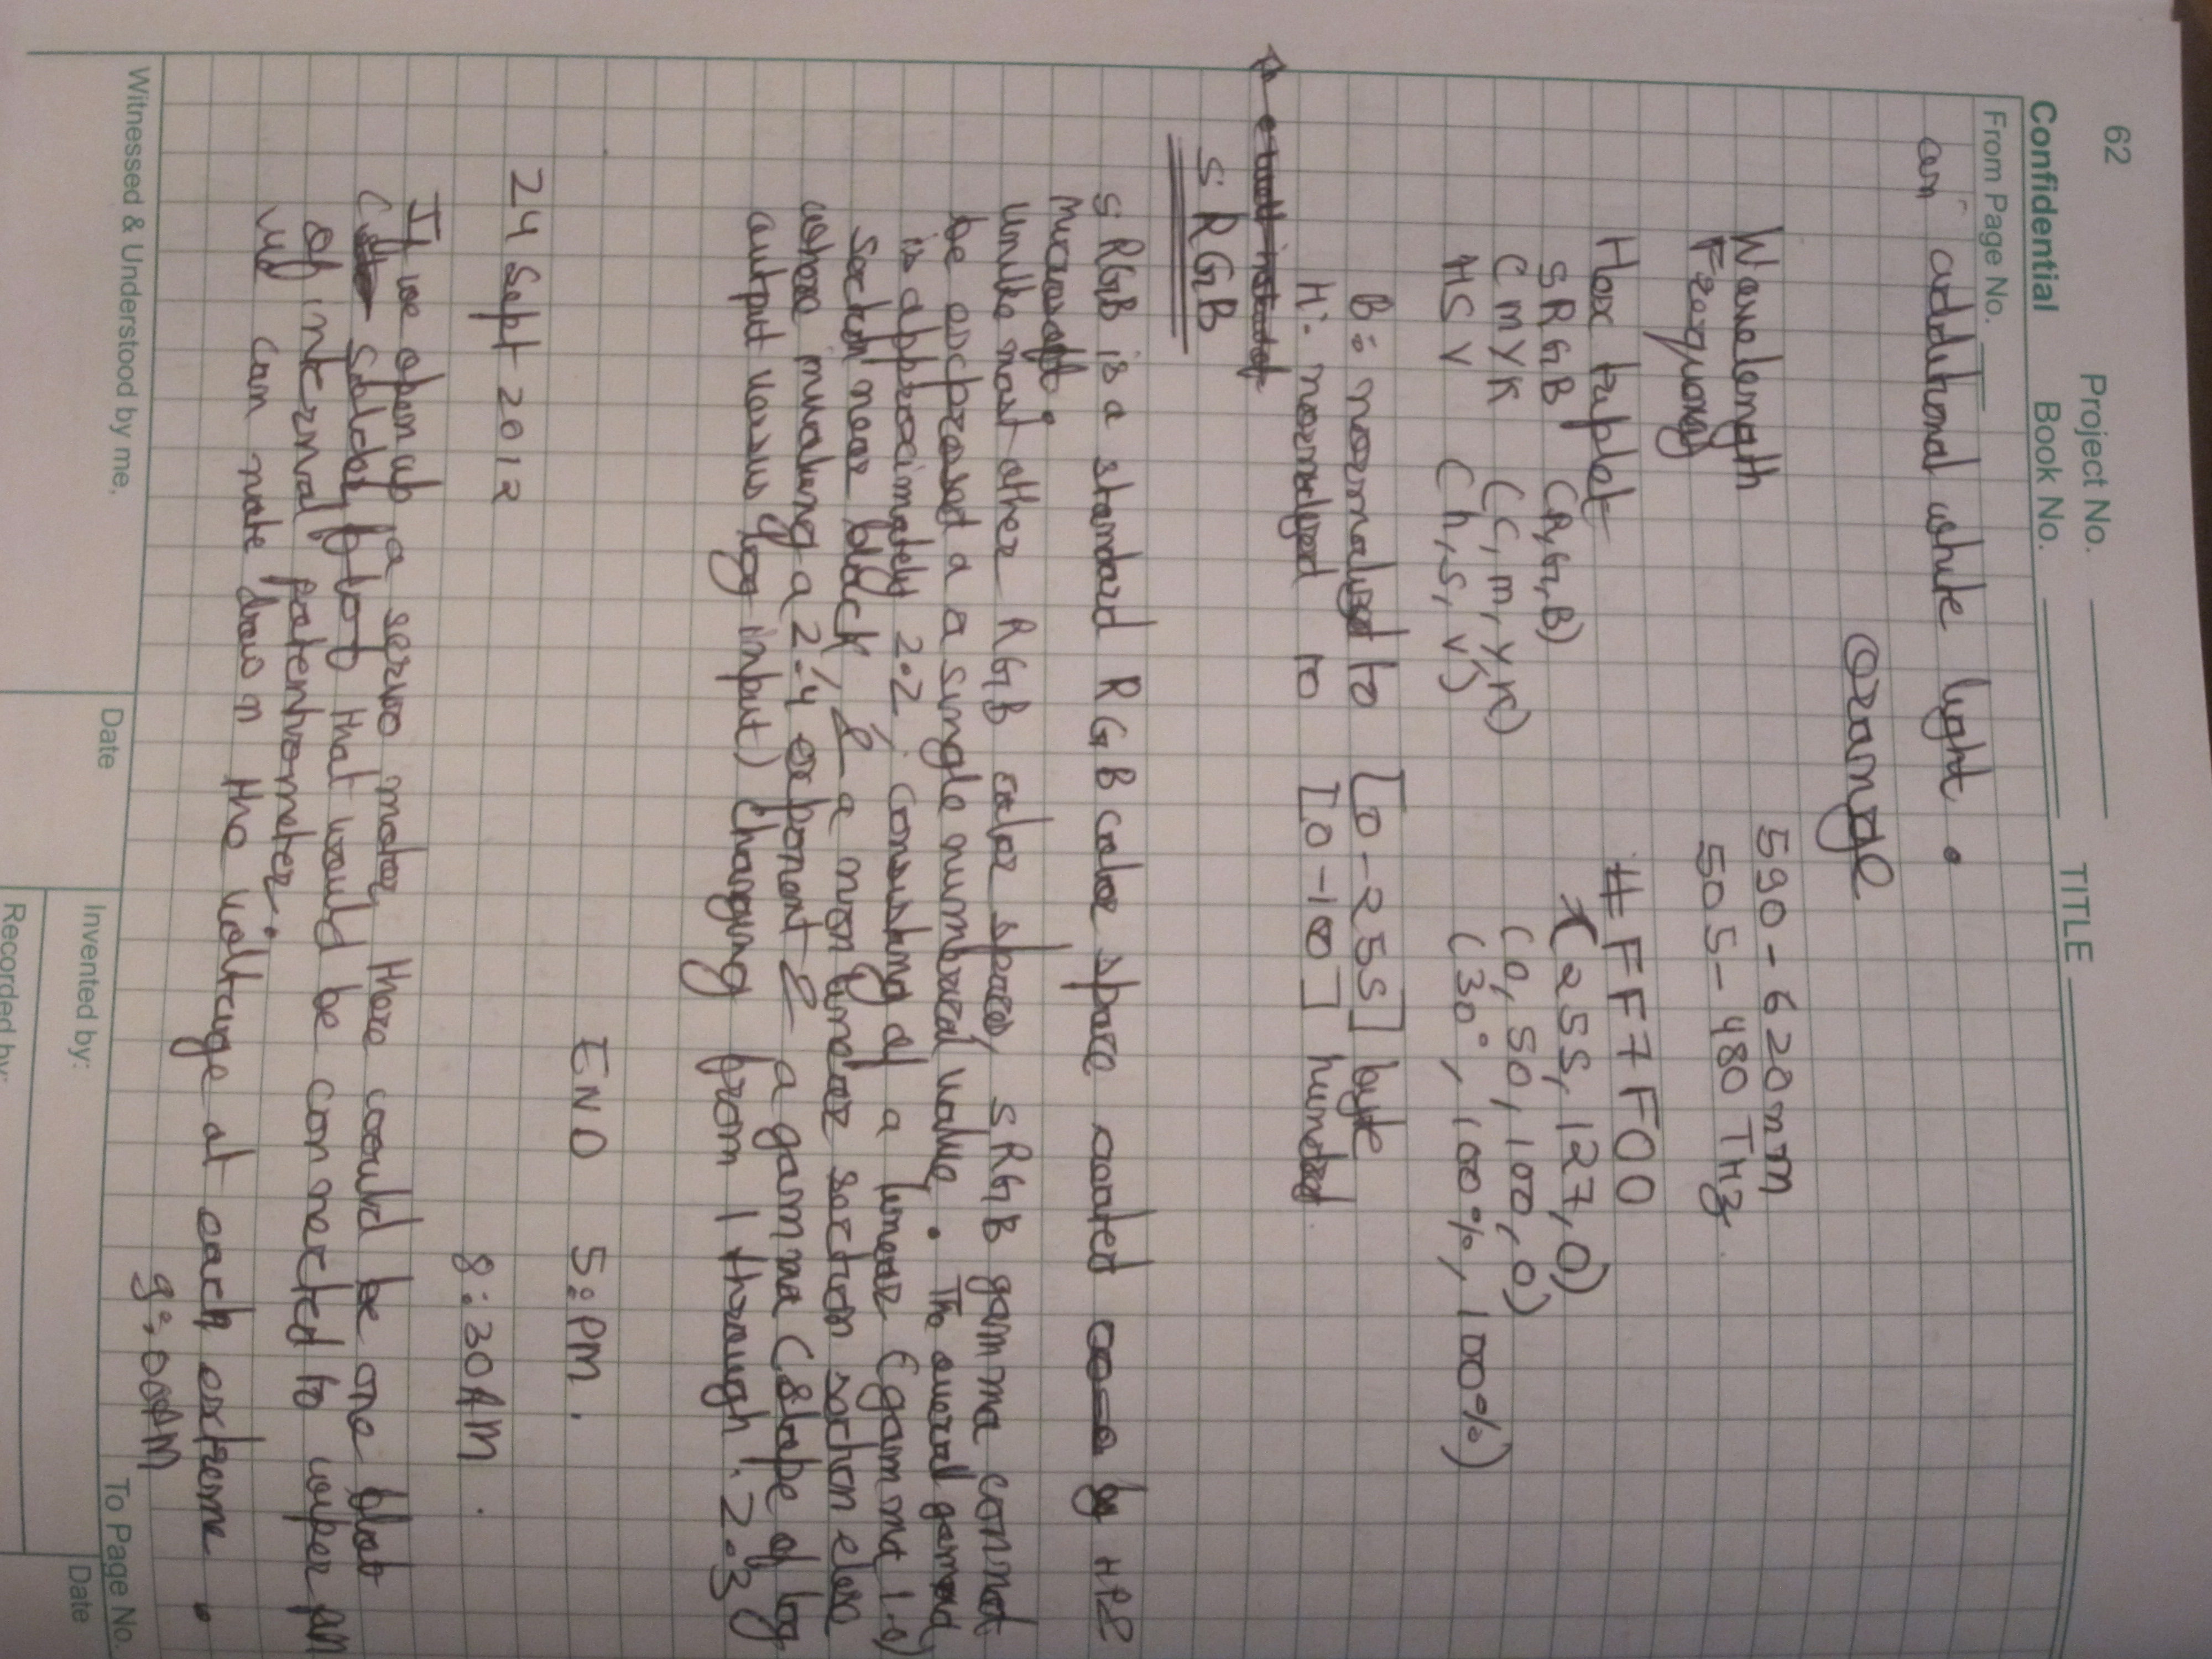 62
Project No.
TITLE
Confidential Book No.
From Page No.
an additional white light.
Orange
Wavelength 590-620nm
Frequency 505-480 THz
Hex triplet #FF7F00
sRGB (R,G,B) (255, 127, 0)
CMYK (C, m, y, K) (0, 50, 100, 0)
HSV (h, s, v) (30°, 100%, 100%)
B: normalized to [0-255] byte
H: normalized to [0-100] hundred
sRGB
sRGB is a standard RGB color space created by HP &
Microsoft.
Unlike most other RGB color spaces, sRGB gamma cannot
be expressed a a single numerical value. The overall gamma
is approximately 2.2, consisting of a linear (gamma 1.0)
section near black, & a non linear section section else
where involving a 2.4 exponent & a gamma (slope of log
output versus log input) changing from 1 through 2.3
END 5:PM.
24 Sept 2012
8:30AM
If we open up a servo motor there would be one blob
( solder blob that would be connected to wiper pin
of internal potentiometer.
We can note down the voltage at each extreme.
9:00AM
To Page No.
Witnessed & Understood by me,
Date
Invented by:
Date
Recorded by: